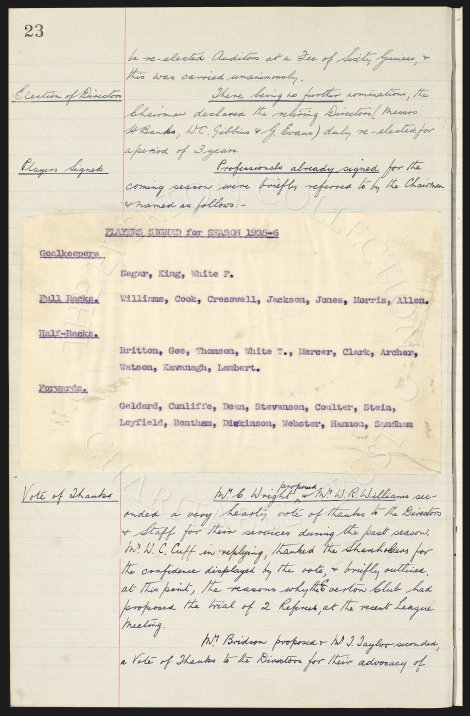 23
be re-elected Auditors at a Fee of Sixty Guineas, &
this was carried unanimously.
Election of Directors
There being no further nominations, the
Chairman declared the retiring Directors (Messrs
H Banks, W.C. Gibbins & G. Evans) duly re-elected for
a period of 3 years
Players Signed
Professionals already signed for the
coming season were briefly referred to by the Chairman
& named as follows:-
PLAYERS SIGNED for SEASON 1935-6
Goalkeepers
Sagar, King, White F.
Full Backs. Williams, Cook, Cresswell, Jackson, Jones, Morris, Allen.
Half-Backs.
Britton, Gee, Thomson, White T., Mercer, Clark, Archer,
Watson, Kavanagh, Lambert.
Forwards.
Geldard, Cunliffe, Dean, Stevenson, Coulter, Stein,
Leyfield, Bentham, Dickinson, Webster, Hannon, Sandham
Vote of Thanks
Mr. C. Wright proposed & Mr. W.R. Williams sec-
onded a very hearty vote of thanks to the Directors
& Staff for their services during the past season.
Mr. W.C. Cuff in replying, thanked the Shareholders for
the confidence displayed by the vote, & briefly outlined,
at this point, the reasons why the Everton Club had
proposed the trial of 2 Referees, at the recent League
Meeting.
Mr. Bridson proposed & Mr. J. Taylor seconded,
a Vote of Thanks to the Directors for their advocacy of